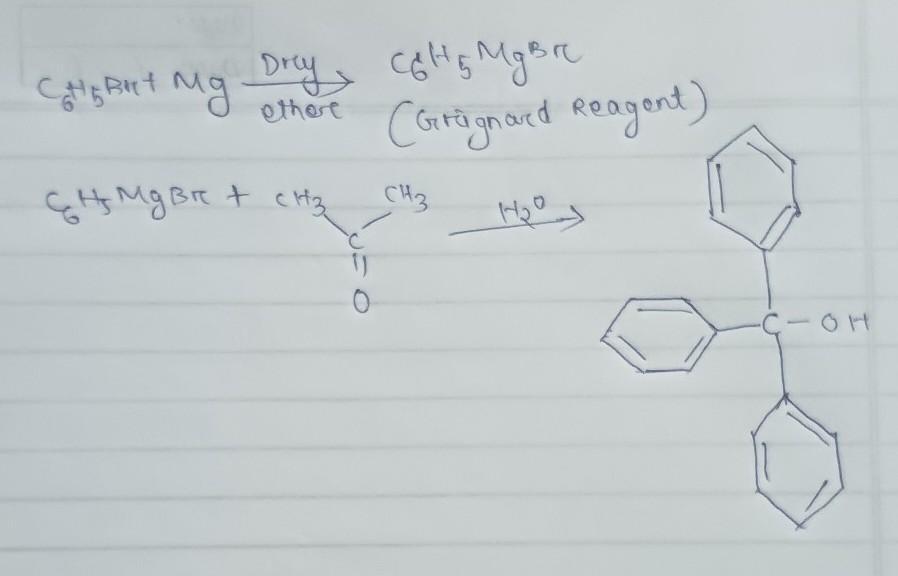 C6H5Br + Mg Dry ether → C6H5MgBr
(Grignard Reagent)
C6H5MgBr + CH3 CH3 H2O →
C
O
C - OH